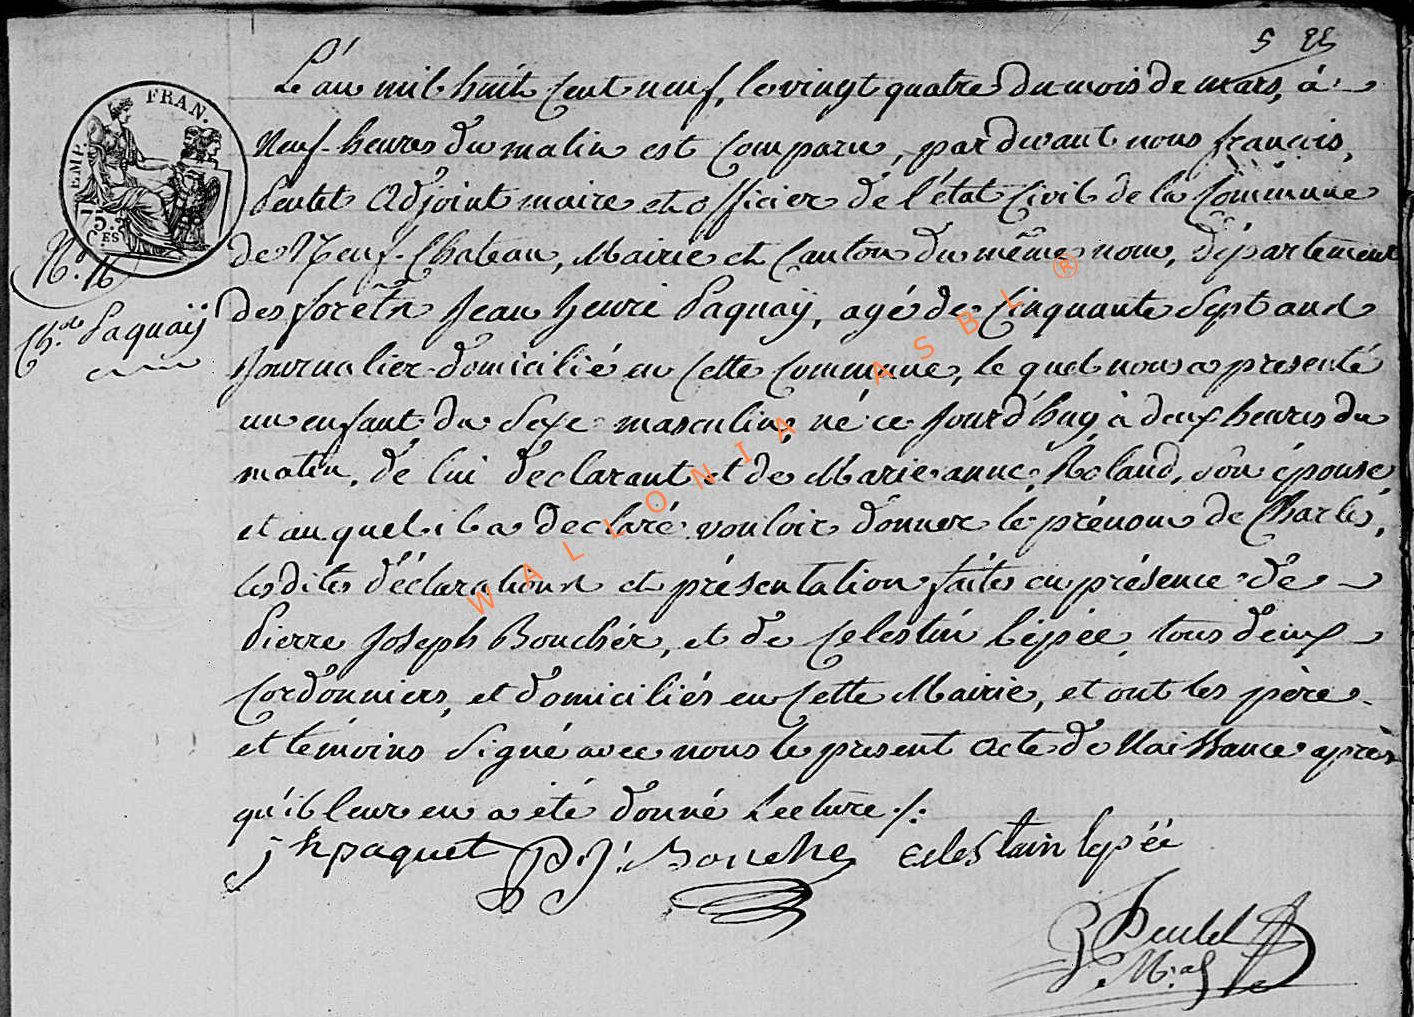 5 25
L'an mil huit cent neuf, le vingt quatre du mois de mars, à
Neuf heures du matin est comparu, pardevant nous françois,
adjoint maire et officier de l'état Civil de la Commune
de Neuf-Chateau, Mairie et Canton du même nom, département
des forêts Jean henri Paquaÿ, agé de Cinquante Sept ans
Journalier domicilié en Cette Commune, le quel nous a presenté
un enfant du Sexe masculin, né ce Jourd'huy à deux heures du
matin, de lui declarant et de Marie anne Roland, son épouse
et au quel il a declaré vouloir donner le prénom de Charles,
les dites déclarations et présentation faites en présence de
Pierre Joseph Bouchér, et de Celestin Lépée, tous deux
Cordonniers, et domiciliés en Cette Mairie, et ont les père
et témoins Signé avec nous le present acte de Naissance après
qu'il leur en a été donné Lecture ./.
jh paquet P. J. Bouche Celestain lepée
EMP. FRAN.
75 CES
N.º 16
Ch.les Paquaÿ
WALLONIA ASBL ®